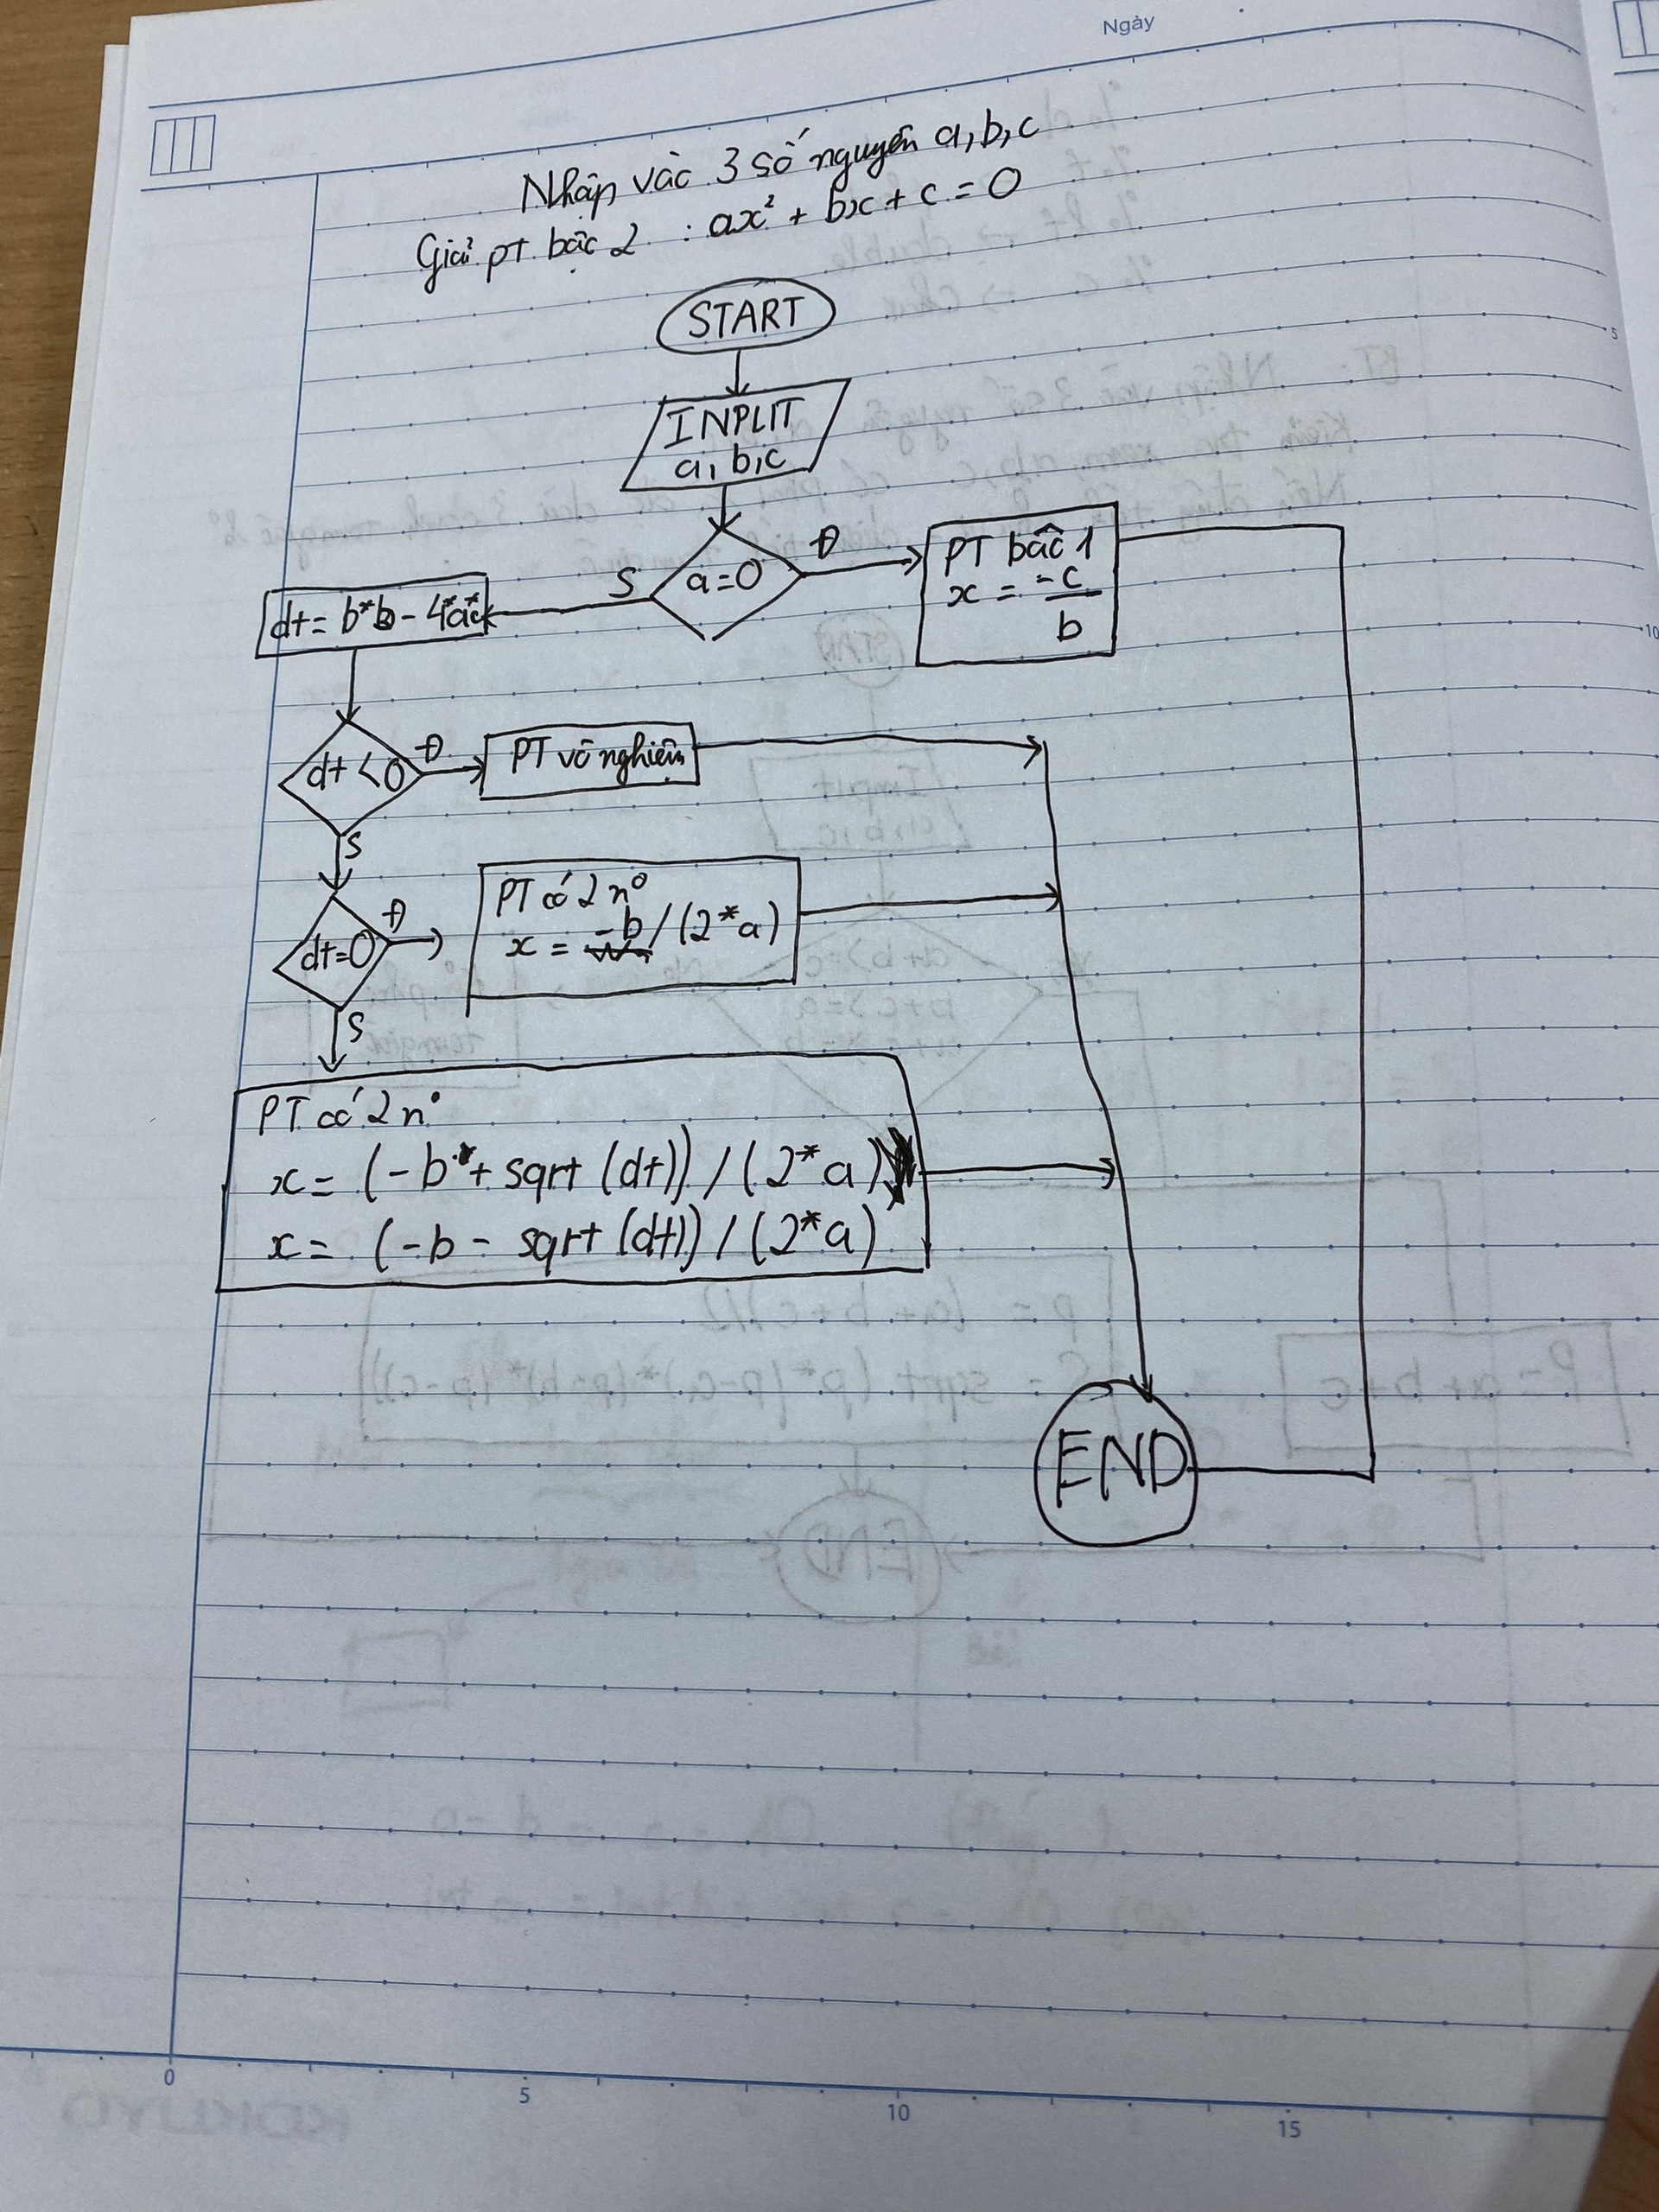 Ngày
Nhập vào 3 số nguyên a, b, c
Giải PT bậc 2 : ax² + bx + c = 0
START
INPUT
a, b, c
a=0
S
Đ
PT bâc 1
x = -c
b
dt = b*b - 4*a*c
dt < 0
Đ
PT vô nghiệm
S
dt=0
Đ
PT có 2 n⁰
x = -b / (2*a)
S
PT có 2 n⁰
x = (-b + sqrt (dt)) / (2*a)
x = (-b - sqrt (dt)) / (2*a)
END
5
10
0
5
10
15